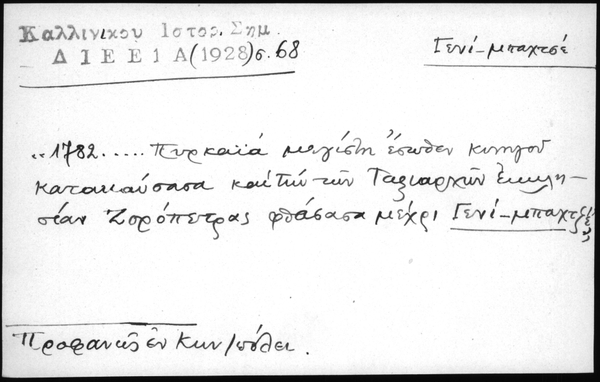 Καλλινίκου Ιστορ. Σημ.
Δ Ι Ε Ε Ι Α (1928) σ. 68
Γενί-μπαχτσέ
"1782..... Πυρκαϊά μεγίστη ἔσωθεν κυνηγοῦ
κατακαύσασα καί τήν τῶν Ταξιαρχῶν ἐκκλη-
σίαν Ζορόπετρας φθάσασα μέχρι Γενί-μπαχτζέ
Προφανῶς ἐν Κων/πόλει.